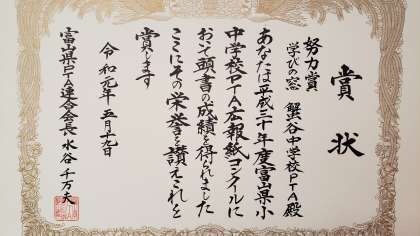 賞状
努力賞
学びの窓 蟹谷中学校PTA殿
あなたは平成三十年度富山県小
中学校PTA広報紙コンクールに
おいて頭書の成績を得られました
ここにその栄誉を讃えこれを
賞します
令和元年五月十九日
富山県PTA連合会長 水谷 千万夫